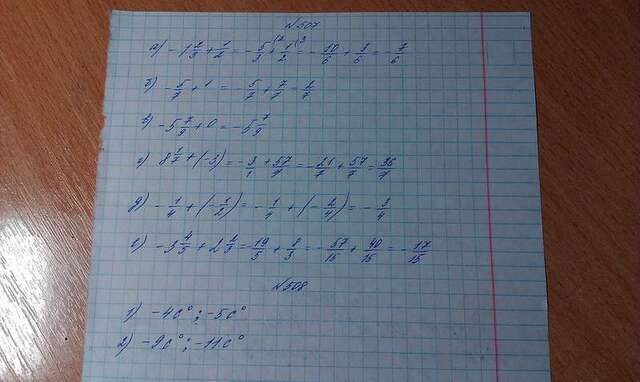 №507
а) -1 2/3 + 1/2 = - 5/3 (2 + 1/2 (3 = - 10/6 + 3/6 = - 7/6
б) - 5/7 + 1 = - 5/7 + 7/7 = 2/7
в) -5 7/9 + 0 = -5 7/9
г) 8 1/7 + (-3) = - 3/1 + 57/7 = - 21/7 + 57/7 = 36/7
д) - 1/4 + (- 1/2) = - 1/4 + (- 2/4) = - 3/4
е) -3 4/5 + 2 2/3 = 19/5 + 8/3 = - 57/15 + 40/15 = - 17/15
№508
1) -4c° ; -5c°
2) -9c° ; -11c°